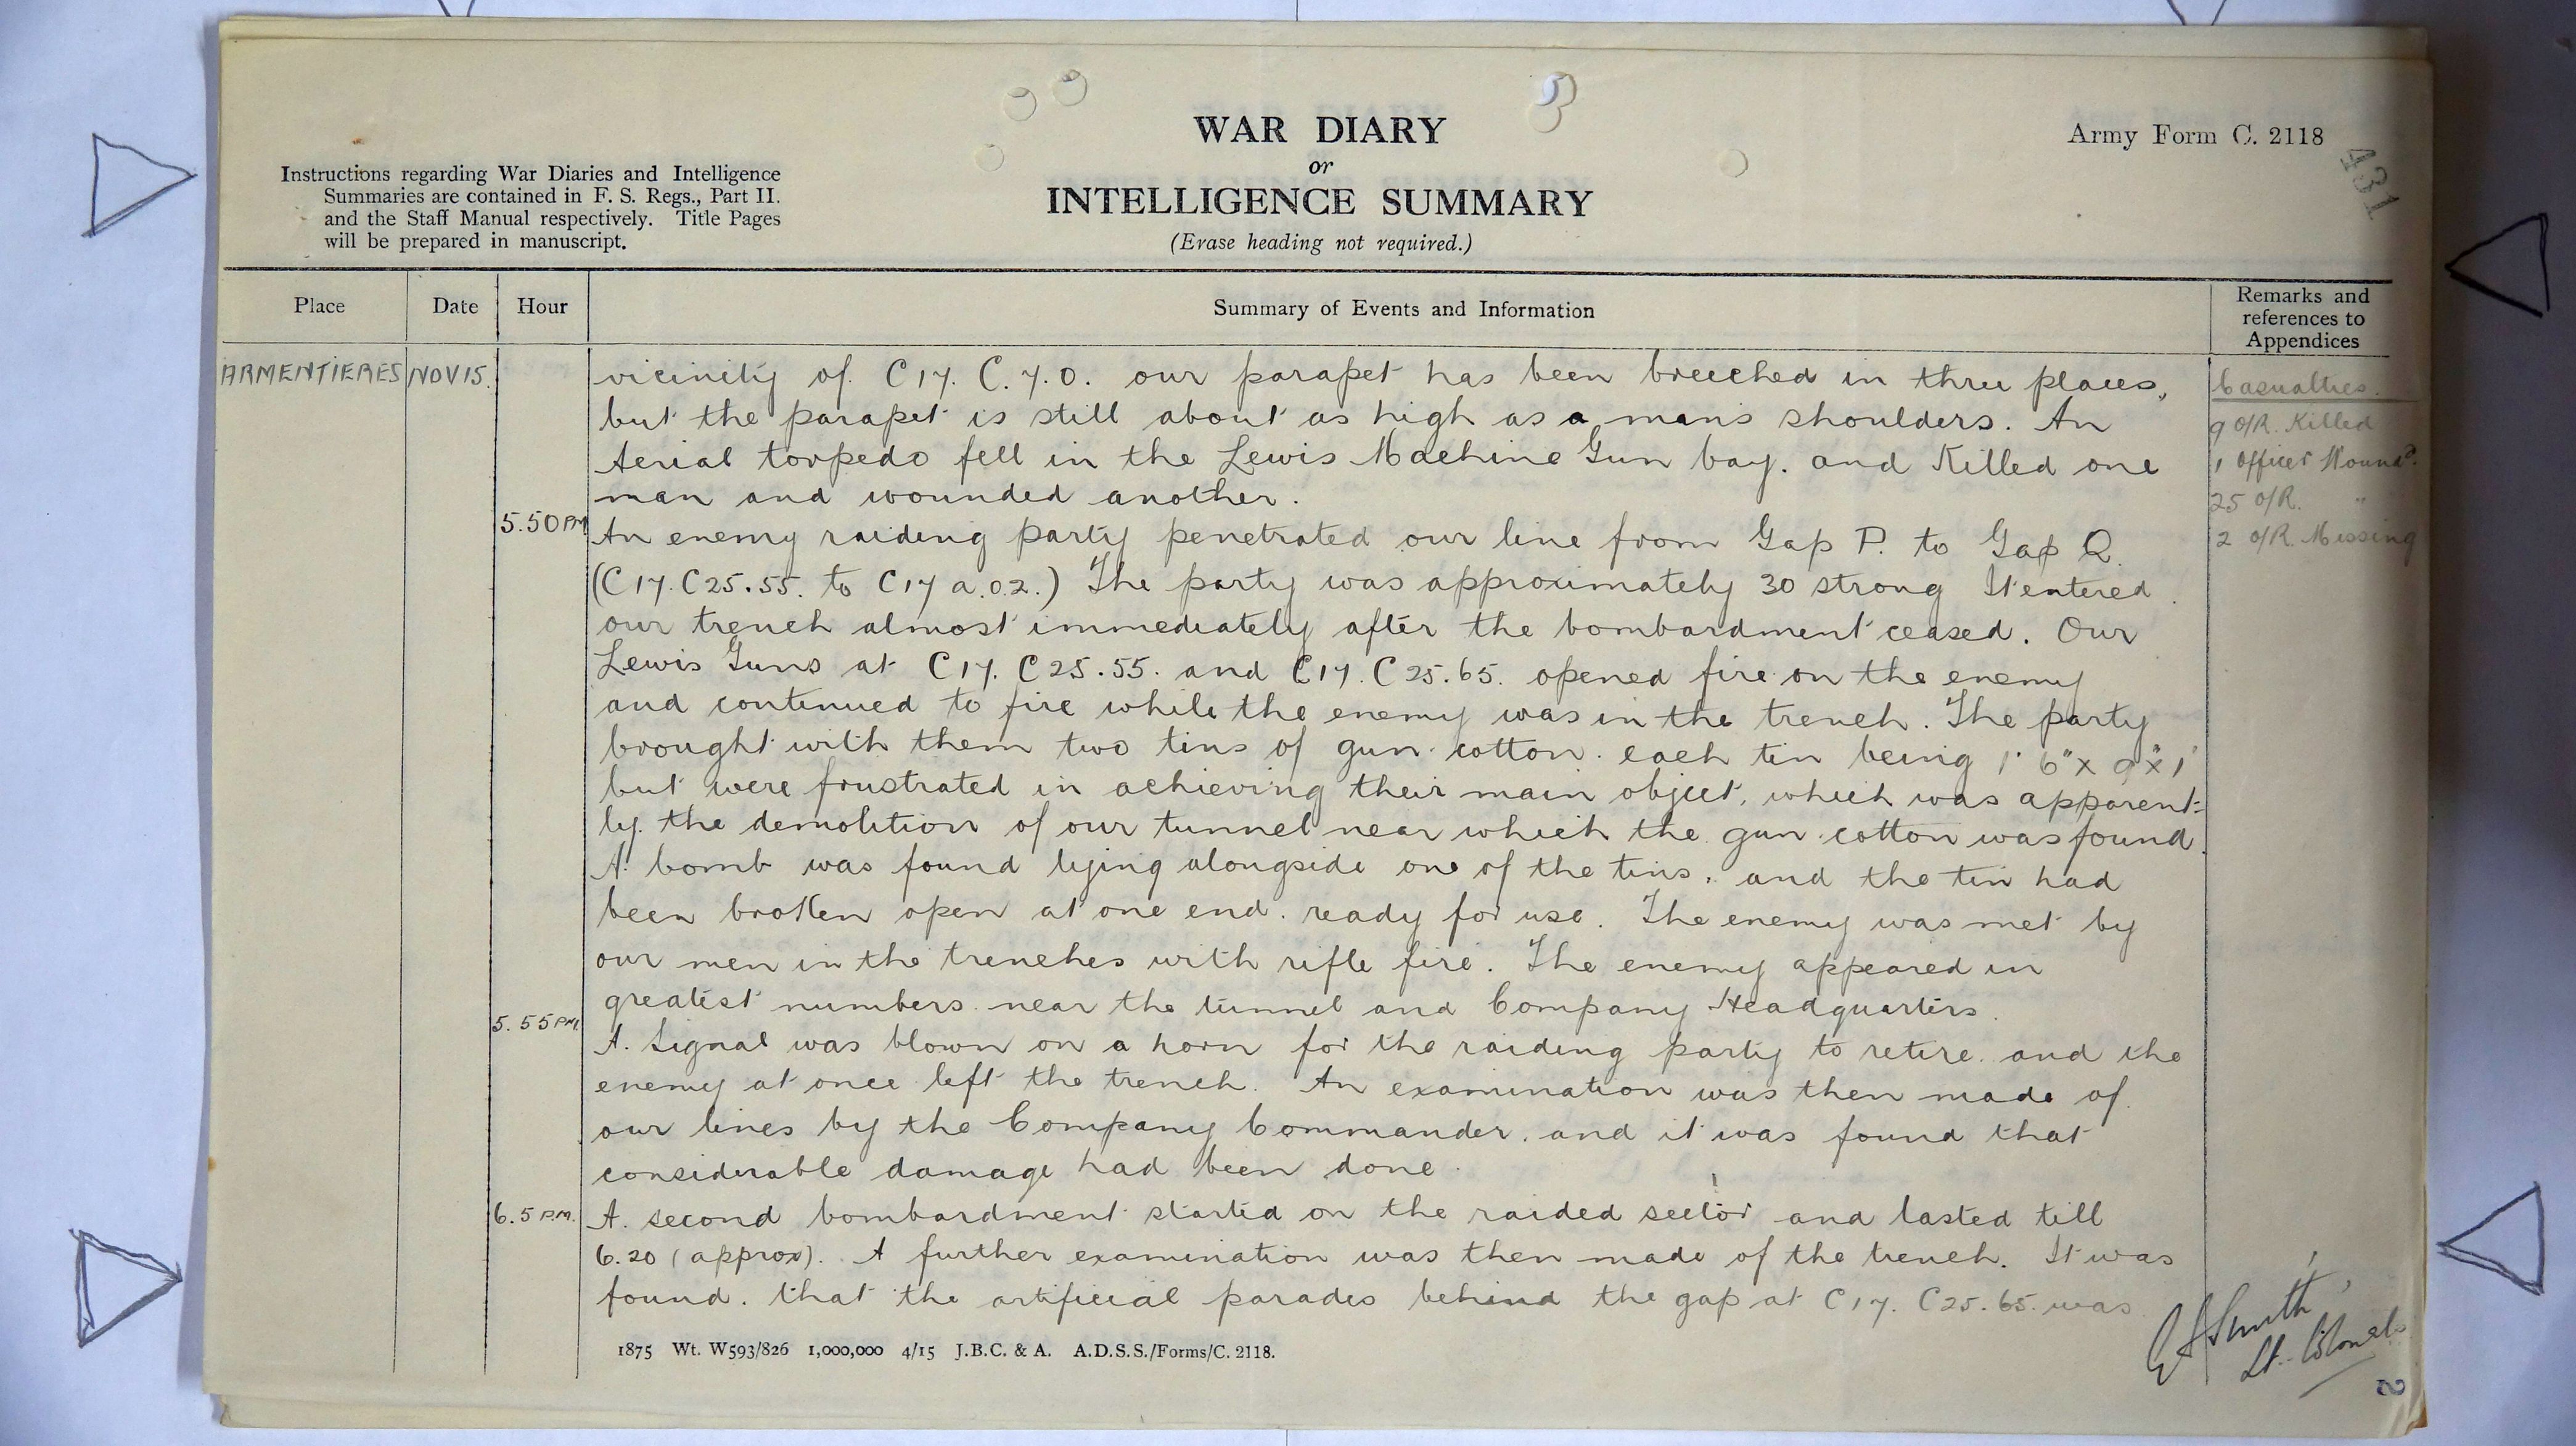 WAR DIARY
or
INTELLIGENCE SUMMARY
(Erase heading not required.)
Army Form C. 2118
431
Instructions regarding War Diaries and Intelligence
Summaries are contained in F. S. Regs., Part II.
and the Staff Manual respectively. Title Pages
will be prepared in manuscript.
Place Date Hour Summary of Events and Information Remarks and references to Appendices
ARMENTIERES NOV 15.
vicinity of C17. C. 7.0. our parapet has been breeched in three places,
but the parapet is still about as high as a mans shoulders. An
Aerial torpedo fell in the Lewis Machine Gun bay. and Killed one
man and wounded another.
5.50 PM An enemy raiding party penetrated our line from Gap P. to Gap Q
(C17. C25.55. to C17 a.0.2.) The party was approximately 30 strong It entered
our trench almost immediately after the bombardment ceased. Our
Lewis Guns at C17. C25.55. and C17. C25.65. opened fire on the enemy
and continued to fire while the enemy was in the trench. The party
brought with them two tins of gun cotton. each tin being 1' 6" x 9" x 1'
but were frustrated in achieving their main object, which was apparent-
ly the demolition of our tunnel near which the gun cotton was found.
A bomb was found lying alongside one of the tins, and the tin had
been broken open at one end. ready for use. The enemy was met by
our men in the trenches with rifle fire. The enemy appeared in
greatest numbers near the tunnel and Company Headquarters.
5.55 PM. A. Signal was blown on a horn for the raiding party to retire. and the
enemy at once left the trench. An examination was then made of
our lines by the Company Commander. and it was found that
considerable damage had been done.
6.5 P.M. A. second bombardment started on the raided sector and lasted till
6.20 (approx). A further examination was then made of the trench. It was
found. that the artificial parados behind the gap at C17. C25.65. was
Casualties.
9 O/R. Killed
1 Officer Wound^d.
25 O/R. "
2 O/R. Missing
Smith
Lt-Colonel
2
1875 Wt. W593/826 1,000,000 4/15 J.B.C. & A. A.D.S.S./Forms/C. 2118.